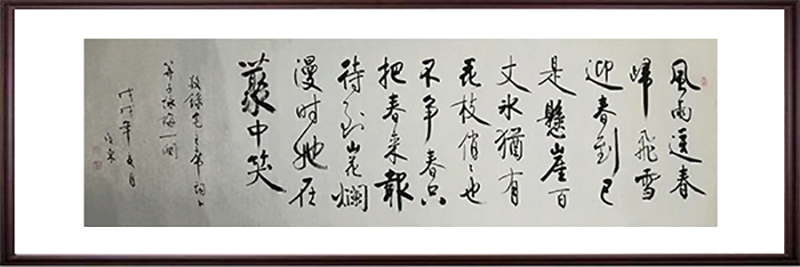 風雨送春
歸飛雪
迎春到已
是懸崖百
丈冰猶有
花枝俏〻也
不争春只
把春来報
待到山花爛
漫时她在
叢中笑
敬錄毛主席词卜
算子詠梅一阕
戊戌年五月